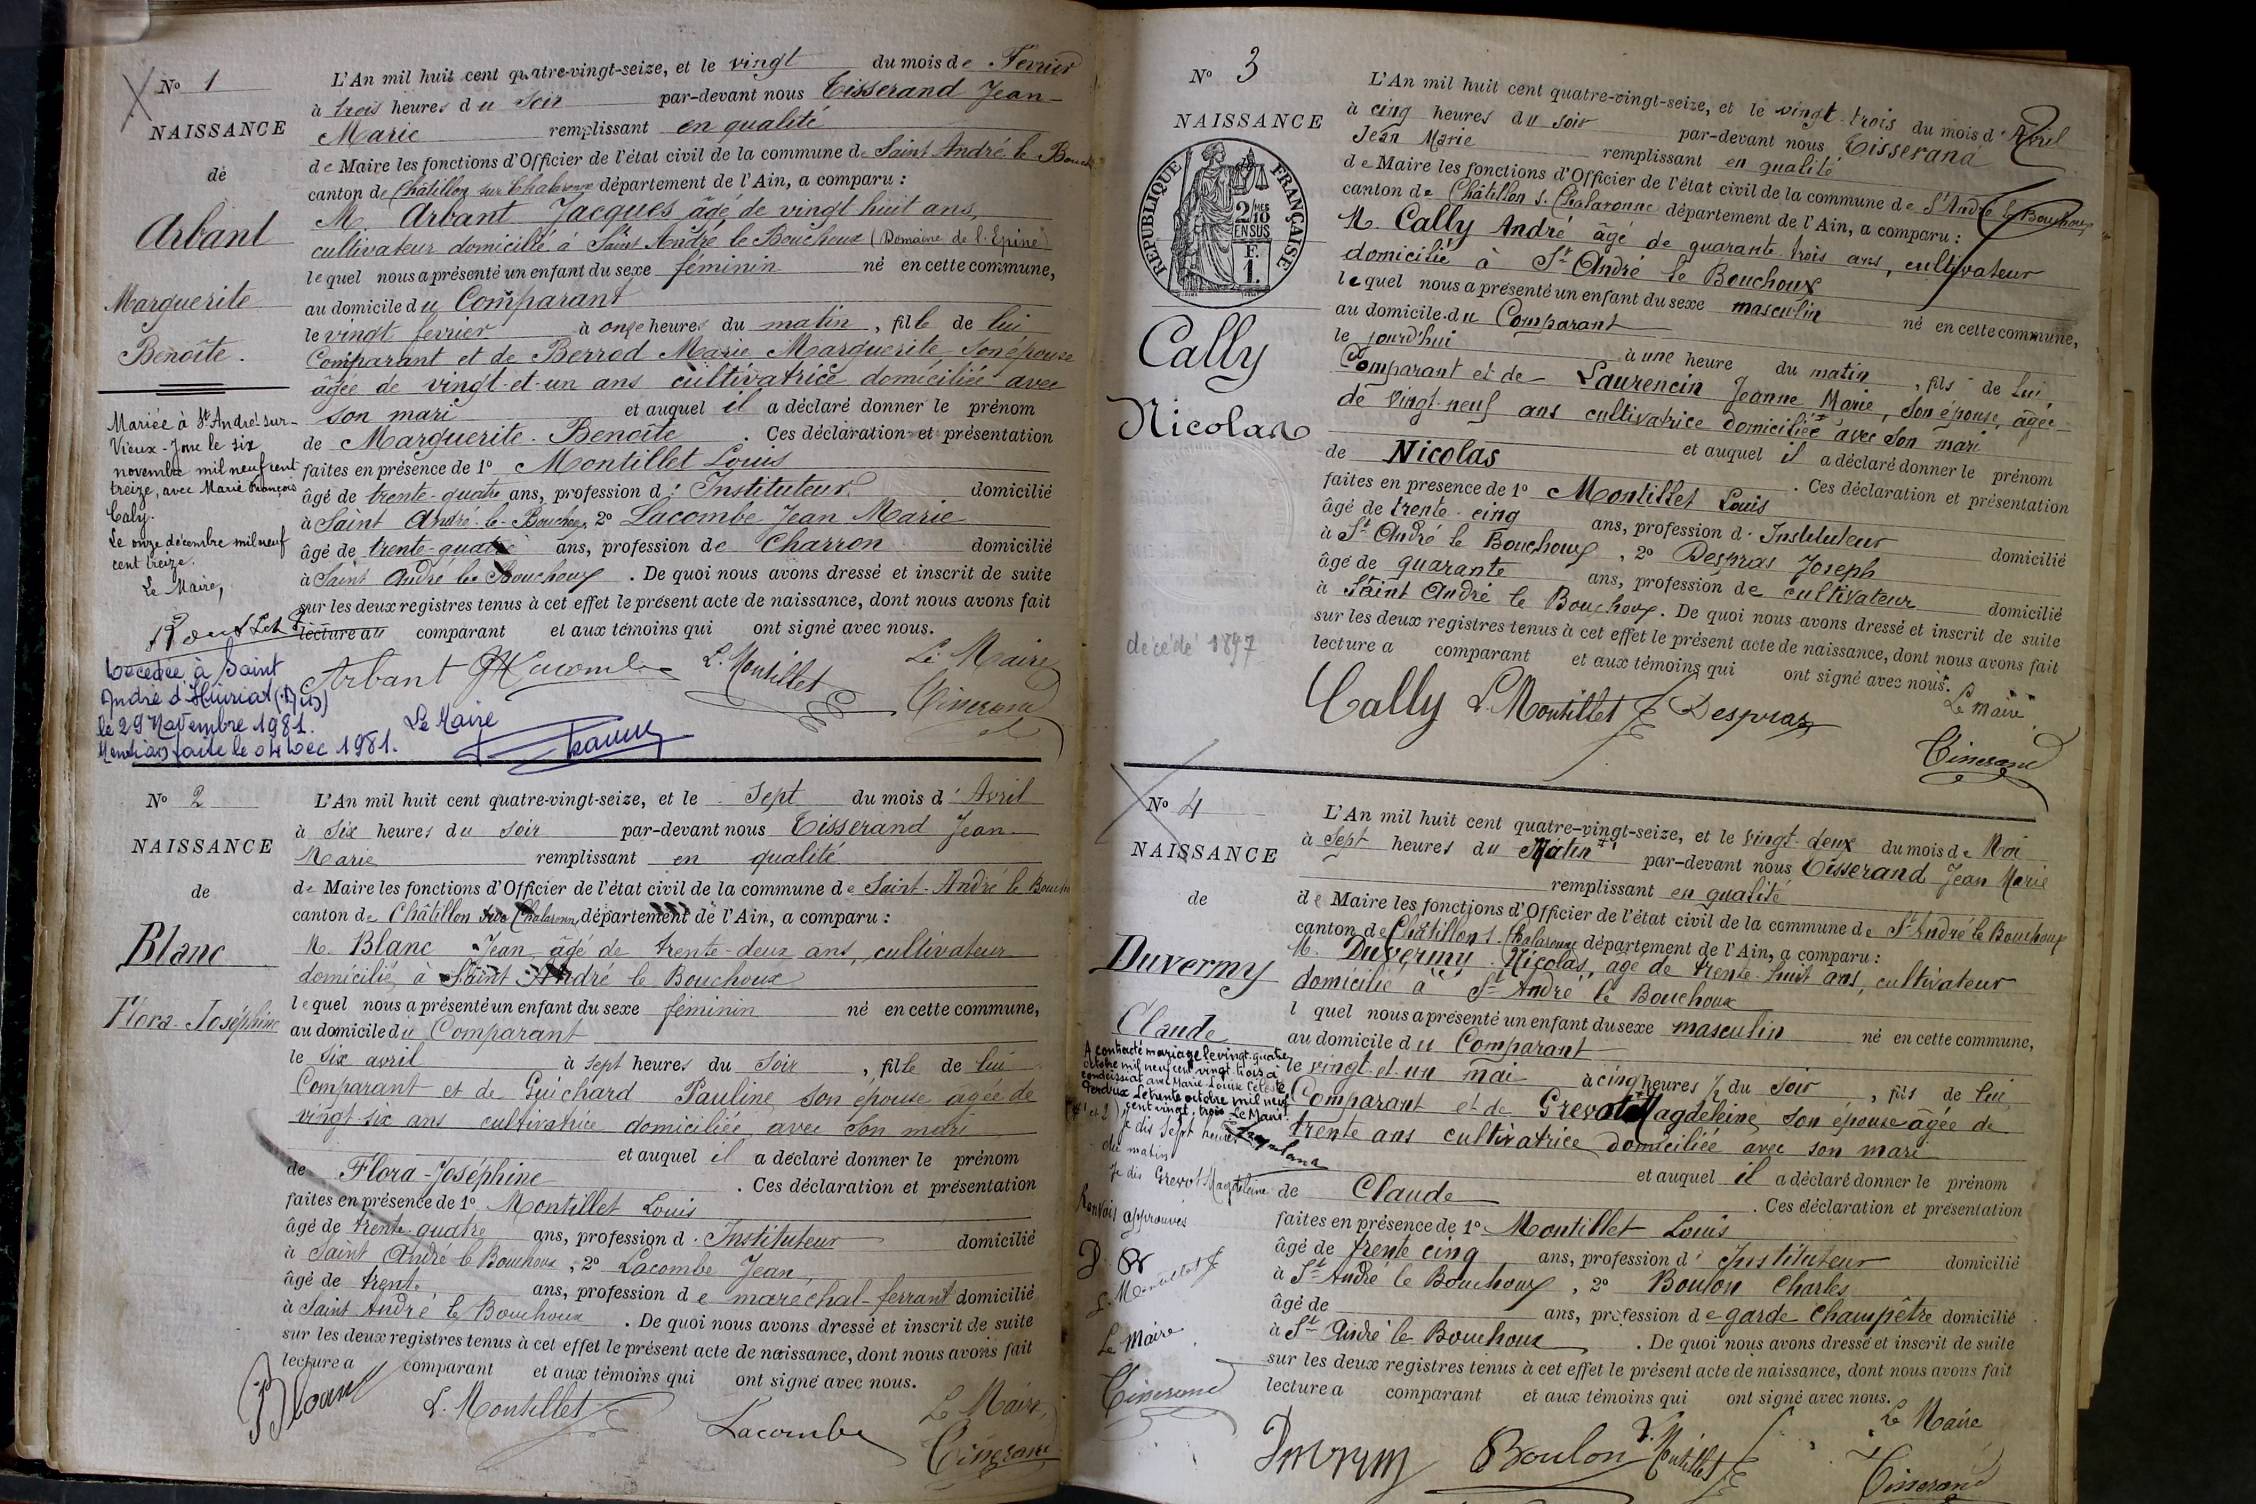 No 1
NAISSANCE
de
Arbant
Marguerite
Benoîte.
Mariée à St André-sur-
Vieux-Jonc le six
novembre mil neuf cent
treize, avec Marie François
Caly.
Le onze décembre mil neuf
cent treize.
Le Maire,
Décédée à Saint
André d'Huiriat (Ain)
le 29 Novembre 1981.
Mention faite le 04 Dec 1981.
Le Maire
L'An mil huit cent quatre-vingt-seize, et le vingt du mois de Février
à trois heures du soir par-devant nous Tisserand Jean-
Marie remplissant en qualité
de Maire les fonctions d'Officier de l'état civil de la commune de Saint André le Bouch
canton de Châtillon sur Chalaronne département de l'Ain, a comparu :
M. Arbant Jacques âgé de vingt huit ans,
cultivateur domicilié à Saint André le Bouchoux (Domaine de l'Epine)
lequel nous a présenté un enfant du sexe féminin né en cette commune,
au domicile du Comparant
le vingt fevrier à onze heures du matin, fille de lui
Comparant et de Berrod Marie Marguerite, son épouse
âgée de vingt-et-un ans cultivatrice domiciliée avec
son mari et auquel il a déclaré donner le prénom
de Marguerite-Benoîte. Ces déclaration et présentation
faites en présence de 1o Montillet Louis
âgé de trente-quatre ans, profession d'Instituteur domicilié
à Saint André-le-Bouchoux, 2o Lacombe Jean Marie
âgé de trente-quatre ans, profession de Charron domicilié
à Saint André le Bouchoux. De quoi nous avons dressé et inscrit de suite
sur les deux registres tenus à cet effet le présent acte de naissance, dont nous avons fait
lecture au comparant et aux témoins qui ont signé avec nous.
Arbant Lacombe L. Montillet Le Maire
Tisserand
No 2
NAISSANCE
de
Blanc
Flora-Joséphine
L'An mil huit cent quatre-vingt-seize, et le Sept du mois d'Avril
à six heures du soir par-devant nous Tisserand Jean-
Marie remplissant en qualité
de Maire les fonctions d'Officier de l'état civil de la commune de Saint-André le Bouch
canton de Châtillon sur Chalaronne, département de l'Ain, a comparu :
M. Blanc Jean âgé de trente-deux ans, cultivateur
domicilié à Saint André le Bouchoux
lequel nous a présenté un enfant du sexe féminin né en cette commune,
au domicile du Comparant
le six avril à sept heures du soir, fille de lui
Comparant et de Guichard Pauline son épouse âgée de
vingt-six ans cultivatrice domiciliée avec son mari
et auquel il a déclaré donner le prénom
de Flora-Joséphine. Ces déclaration et présentation
faites en présence de 1o Montillet Louis
âgé de trente-quatre ans, profession d'Instituteur domicilié
à Saint André le Bouchoux, 2o Lacombe Jean
âgé de trente ans, profession de maréchal-ferrant domicilié
à Saint André le Bouchoux. De quoi nous avons dressé et inscrit de suite
sur les deux registres tenus à cet effet le présent acte de naissance, dont nous avons fait
lecture a comparant et aux témoins qui ont signé avec nous.
Blanc L. Montillet Lacombe Le Maire,
Tisserand
No 3
NAISSANCE
RÉPUBLIQUE FRANÇAISE
2/10 MES
EN SUS
F.
1.
Cally
Nicolas
décédé 1897
L'An mil huit cent quatre-vingt-seize, et le vingt-trois du mois d'Avril
à cinq heures du soir par-devant nous Tisserand
Jean Marie remplissant en qualité
de Maire les fonctions d'Officier de l'état civil de la commune de St André le Bouchoux
canton de Châtillon s. Chalaronne département de l'Ain, a comparu :
M. Cally André âgé de quarante trois ans, cultivateur
domicilié à St André le Bouchoux
lequel nous a présenté un enfant du sexe masculin né en cette commune,
au domicile du Comparant
le jourd'hui à une heure du matin, fils de lui,
Comparant et de Laurencin Jeanne Marie, son épouse, âgée
de vingt-neuf ans cultivatrice domiciliée avec son mari
et auquel il a déclaré donner le prénom
de Nicolas. Ces déclaration et présentation
faites en présence de 1o Montillet Louis
âgé de trente-cinq ans, profession d'Instituteur domicilié
à St André le Bouchoux, 2o Despras Joseph
âgé de quarante ans, profession de cultivateur domicilié
à Saint André le Bouchoux. De quoi nous avons dressé et inscrit de suite
sur les deux registres tenus à cet effet le présent acte de naissance, dont nous avons fait
lecture a comparant et aux témoins qui ont signé avec nous.
Cally L. Montillet Despras Le Maire
Tisserand
No 4
NAISSANCE
de
Duvermy
Claude
A contracté mariage le vingt-quatre
octobre mil neuf cent vingt trois à
Condeissiat avec Marie Louise Céleste
Perdrix Le trente octobre mil neuf
cent vingt trois Le Maire
Je dis Sept heures
du matin
Je dis Grevot Magdeleine
Renvois approuvés
L. Montillet
Le Maire
Tisserand
L'An mil huit cent quatre-vingt-seize, et le vingt-deux du mois de Mai
à Sept heures du Matin par-devant nous Tisserand Jean Marie
remplissant en qualité
de Maire les fonctions d'Officier de l'état civil de la commune de St André le Bouchoux
canton de Châtillon s. Chalaronne département de l'Ain, a comparu :
M. Duvermy Nicolas, âgé de trente-huit ans, cultivateur
domicilié à St André le Bouchoux
l quel nous a présenté un enfant du sexe masculin né en cette commune,
au domicile du Comparant
le vingt-et-un mai à cinq heures ½ du soir, fils de lui
Comparant et de Grevot Magdeleine son épouse âgée de
trente ans cultivatrice domiciliée avec son mari
et auquel il a déclaré donner le prénom
de Claude. Ces déclaration et présentation
faites en présence de 1o Montillet Louis
âgé de trente cinq ans, profession d'Instituteur domicilié
à St André le Bouchoux, 2o Boulon Charles
âgé de ans, profession de garde champêtre domicilié
à St André le Bouchoux. De quoi nous avons dressé et inscrit de suite
sur les deux registres tenus à cet effet le présent acte de naissance, dont nous avons fait
lecture a comparant et aux témoins qui ont signé avec nous.
Duvermy Boulon L. Montillet Le Maire
Tisserand